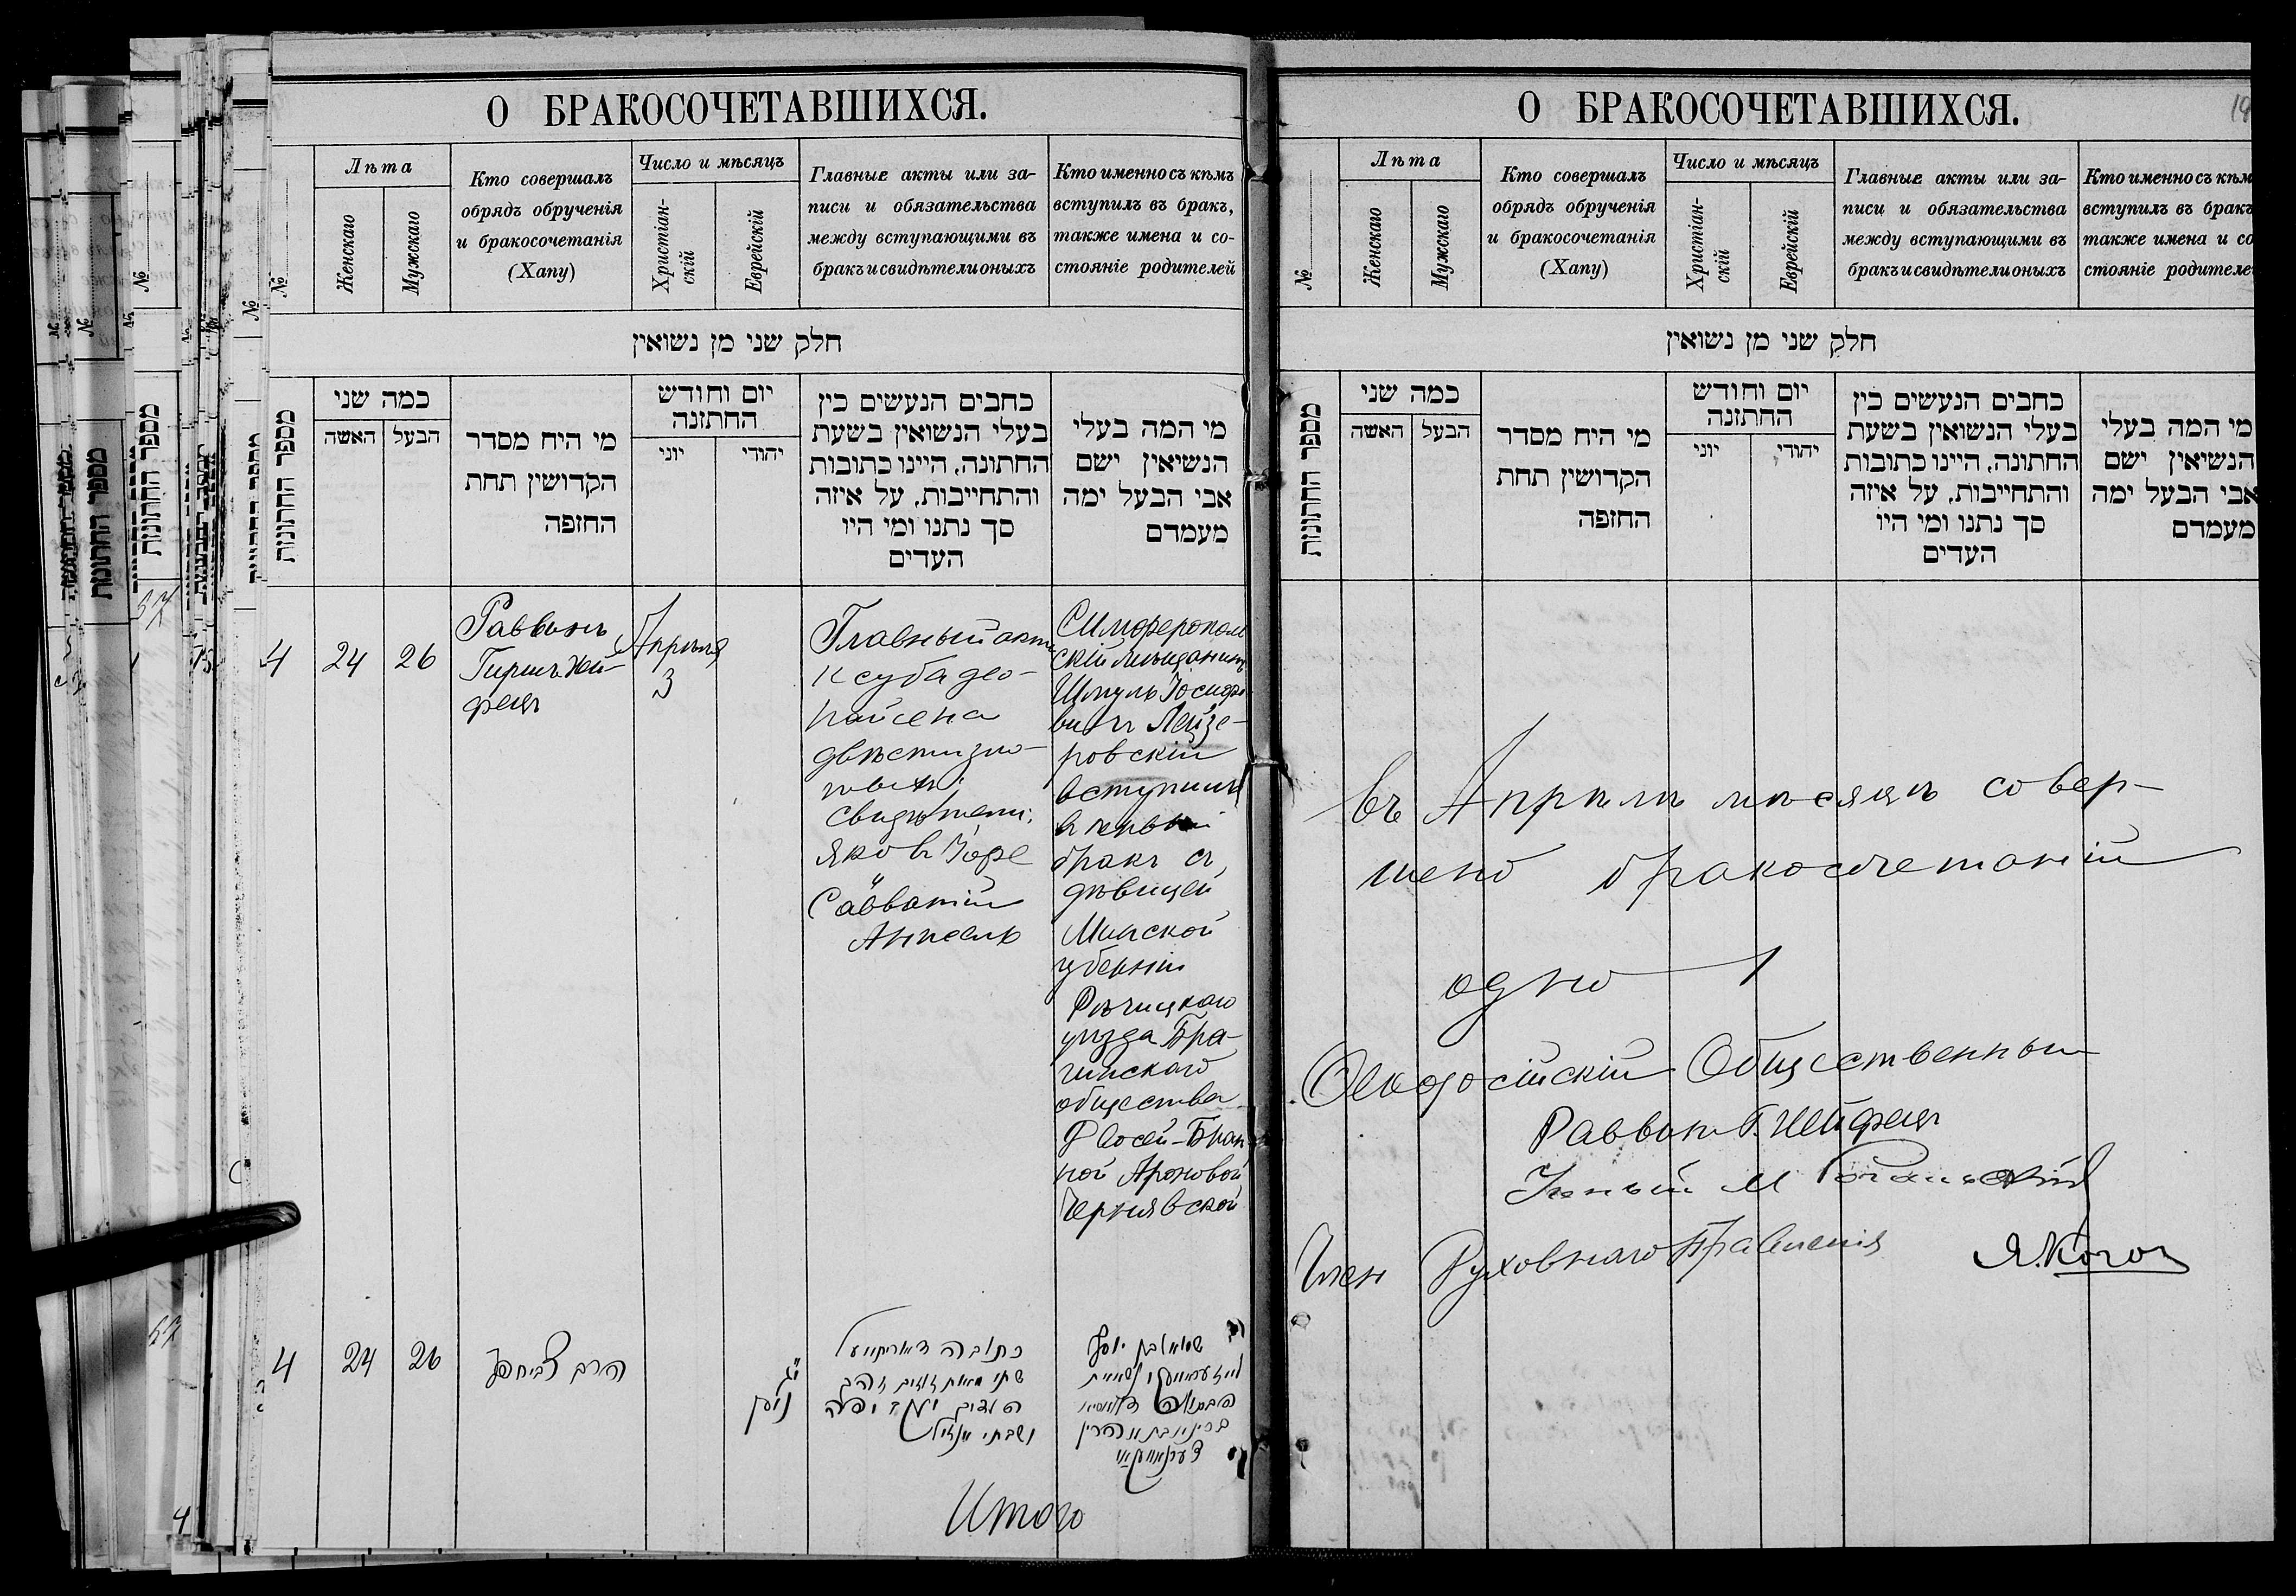 О БРАКОСОЧЕТАВШИХСЯ.
№
Лѣта
Женскаго
Мужскаго
Кто совершалъ
обрядъ обрученія
и бракосочетанія
(Хапу)
Число и мѣсяцъ
Христіан-
скій
Еврейскій
Главные акты или за-
писи и обязательства
между вступающими въ
бракъ и свидѣтели оныхъ
Кто именно съ кѣмъ
вступилъ въ бракъ,
также имена и со-
стояніе родителей
חלק שני מן נשואין
מספר החתונות
כמה שני
האשה
הבעל
מי היח מסדר
הקדושין תחת
החזפה
יום וחודש
החתזנה
יוני
יהודי
כחבים הנעשים כין
בעלי הנשואין בשעת
החתונה, היינו כתובות
והתחייבות, על איזה
סך נתנו ומי היו
העדים
מי המה בעלי
הנשיאין ישם
אבי הבעל ימה
מעמדם
4
24
26
Раввинъ
Гиршъ Хей-
фецъ
Апрѣля
3
Главный актъ
ксуба део-
райсена
двѣсти зло-
тыхъ;
Свидѣтели:
Яковъ Іофе
и
Савватій
Анпель
Симферополь
скій мѣщанинъ
Шмуль Іосифо-
вичъ Лейзе-
ровскій
вступилъ
въ первый
бракъ съ
дѣвицей
Минской
губерніи
Рѣчицкаго
уѣзда Бра-
гинскаго
общества
Ароновой
Чернявской
4
24
26
הרב
כתובה דאורייתא
שתי מאות זוזים זהב
העדים
ושבתי
שמואל בן יוסף
הבתולה
בת אהרן
Итого
О БРАКОСОЧЕТАВШИХСЯ.
№
Лѣта
Женскаго
Мужскаго
Кто совершалъ
обрядъ обрученія
и бракосочетанія
(Хапу)
Число и мѣсяцъ
Христіан-
скій
Еврейскій
Главные акты или за-
писи и обязательства
между вступающими въ
бракъ и свидѣтели оныхъ
Кто именно съ кѣм
вступилъ въ бракъ
также имена и со
стояніе родителе
חלק שני מן נשואין
מספר החתונות
כמה שני
האשה
הבעל
מי היח מסדר
הקדושין תחת
החזפה
יום וחודש
החתזנה
יוני
יהודי
כחבים הנעשים כין
בעלי הנשואין בשעת
החתונה, היינו כתובות
והתחייבות, על איזה
סך נתנו ומי היו
העדים
מי המה בעלי
הנשיאין ישם
אבי הבעל ימה
מעמדם
въ Апрѣлѣ мѣсяцѣ совер-
шено бракосочетаній
одно 1
Ѳеодосійскій Общественный
Раввинъ Г. Хейфецъ
Ученый М
Член Духовнаго Правленія
Я. Коган